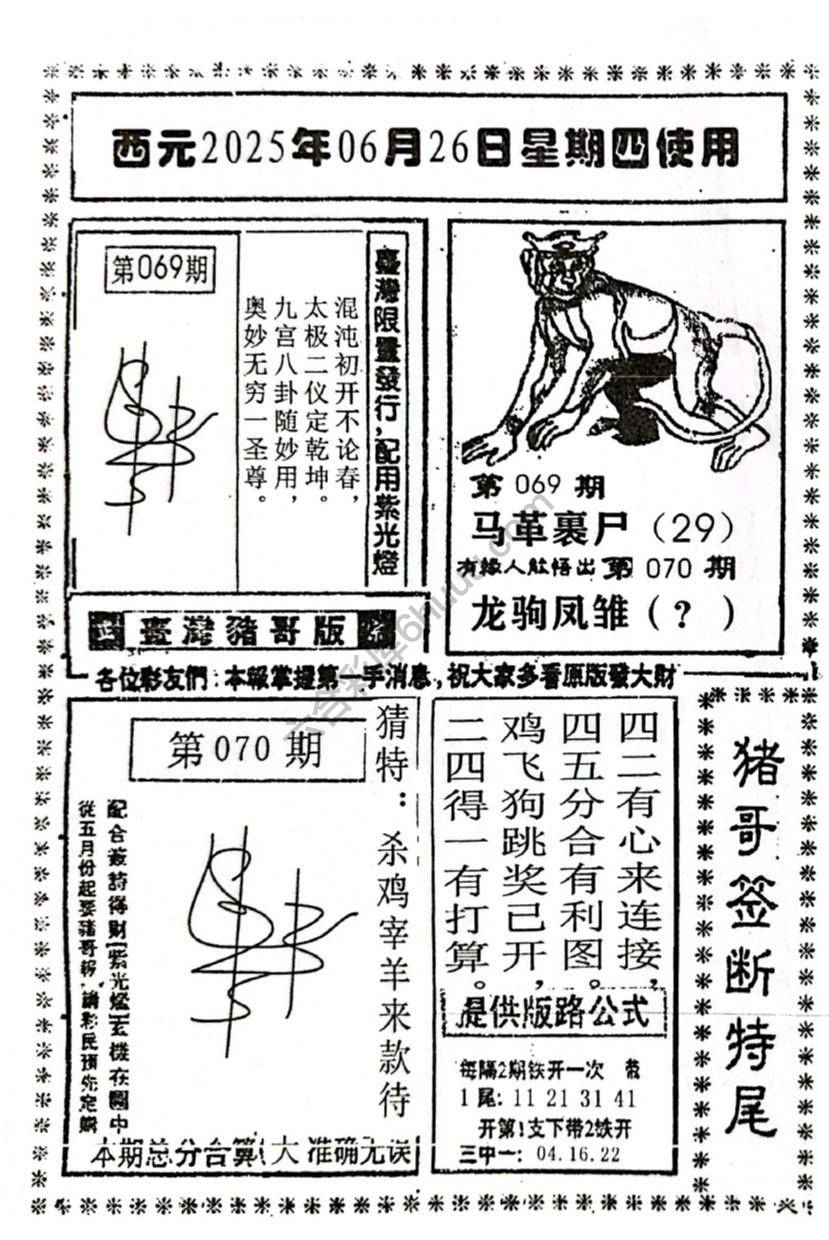 西元2025年06月26日星期四使用
第069期
臺灣限量發行,配用紫光燈
混沌初开不论春,
太极二仪定乾坤。
九宫八卦随妙用,
奥妙无穷一圣尊。
第 069 期
马革裹尸（29）
有缘人能悟出第 070 期
龙驹凤雏（?）
臺灣豬哥版
各位彩友們:本報掌握第一手消息,祝大家多看原版發大財
第070期
猜特:杀鸡宰羊来款待
配合簽詩得財[紫光燈]玄機在圖中
從五月份起要豬哥報,請彩民預先定購
本期总分合算(大 准确无误
四二有心来连接,
四五分合有利图。
鸡飞狗跳奖已开,
二四得一有打算。
提供版路公式
每隔2期铁开一次 带
1尾: 11 21 31 41
开第1支下带2铁开
三中一: 04.16.22
猪哥签断特尾
六合彩库6huuu.com